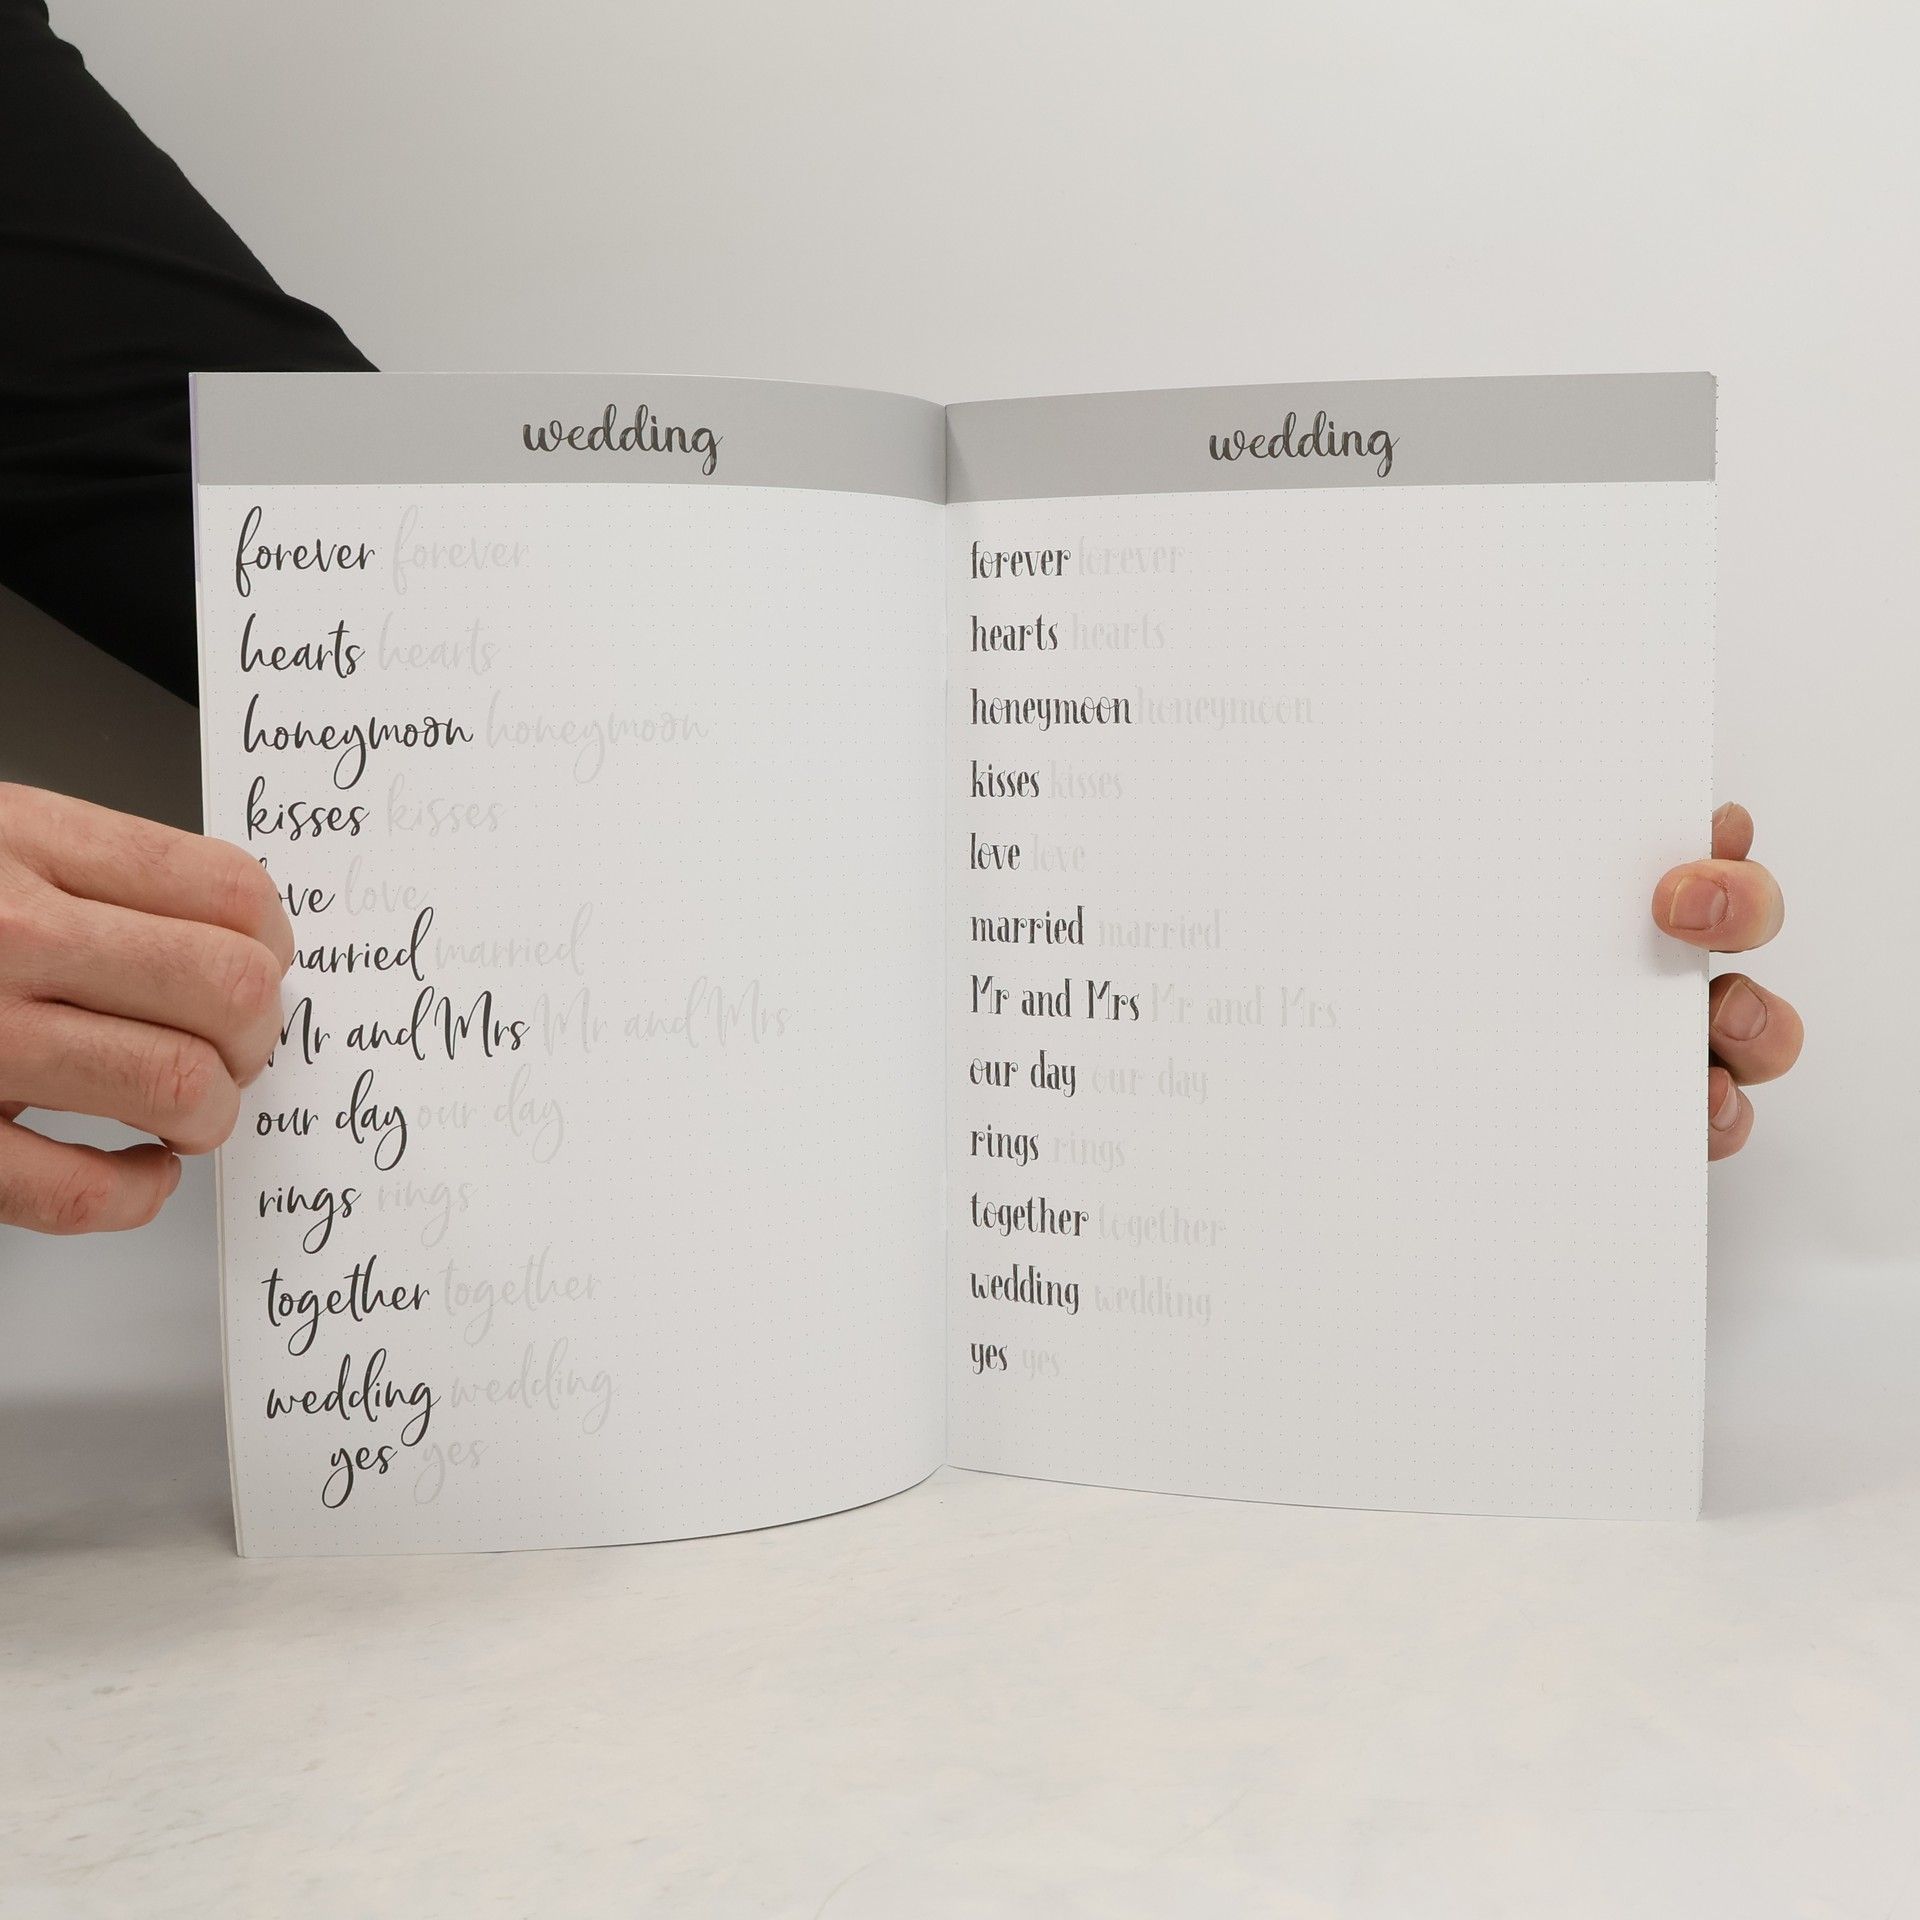 wedding
forever forever
hearts hearts
honeymoon honeymoon
kisses kisses
love
married married
Mr and Mrs Mr and Mrs
our day our day
rings rings
together together
wedding wedding
yes yes
wedding
forever forever
hearts hearts
honeymoon honeymoon
kisses kisses
love love
married married
Mr and Mrs Mr and Mrs
our day our day
rings rings
together together
wedding wedding
yes yes